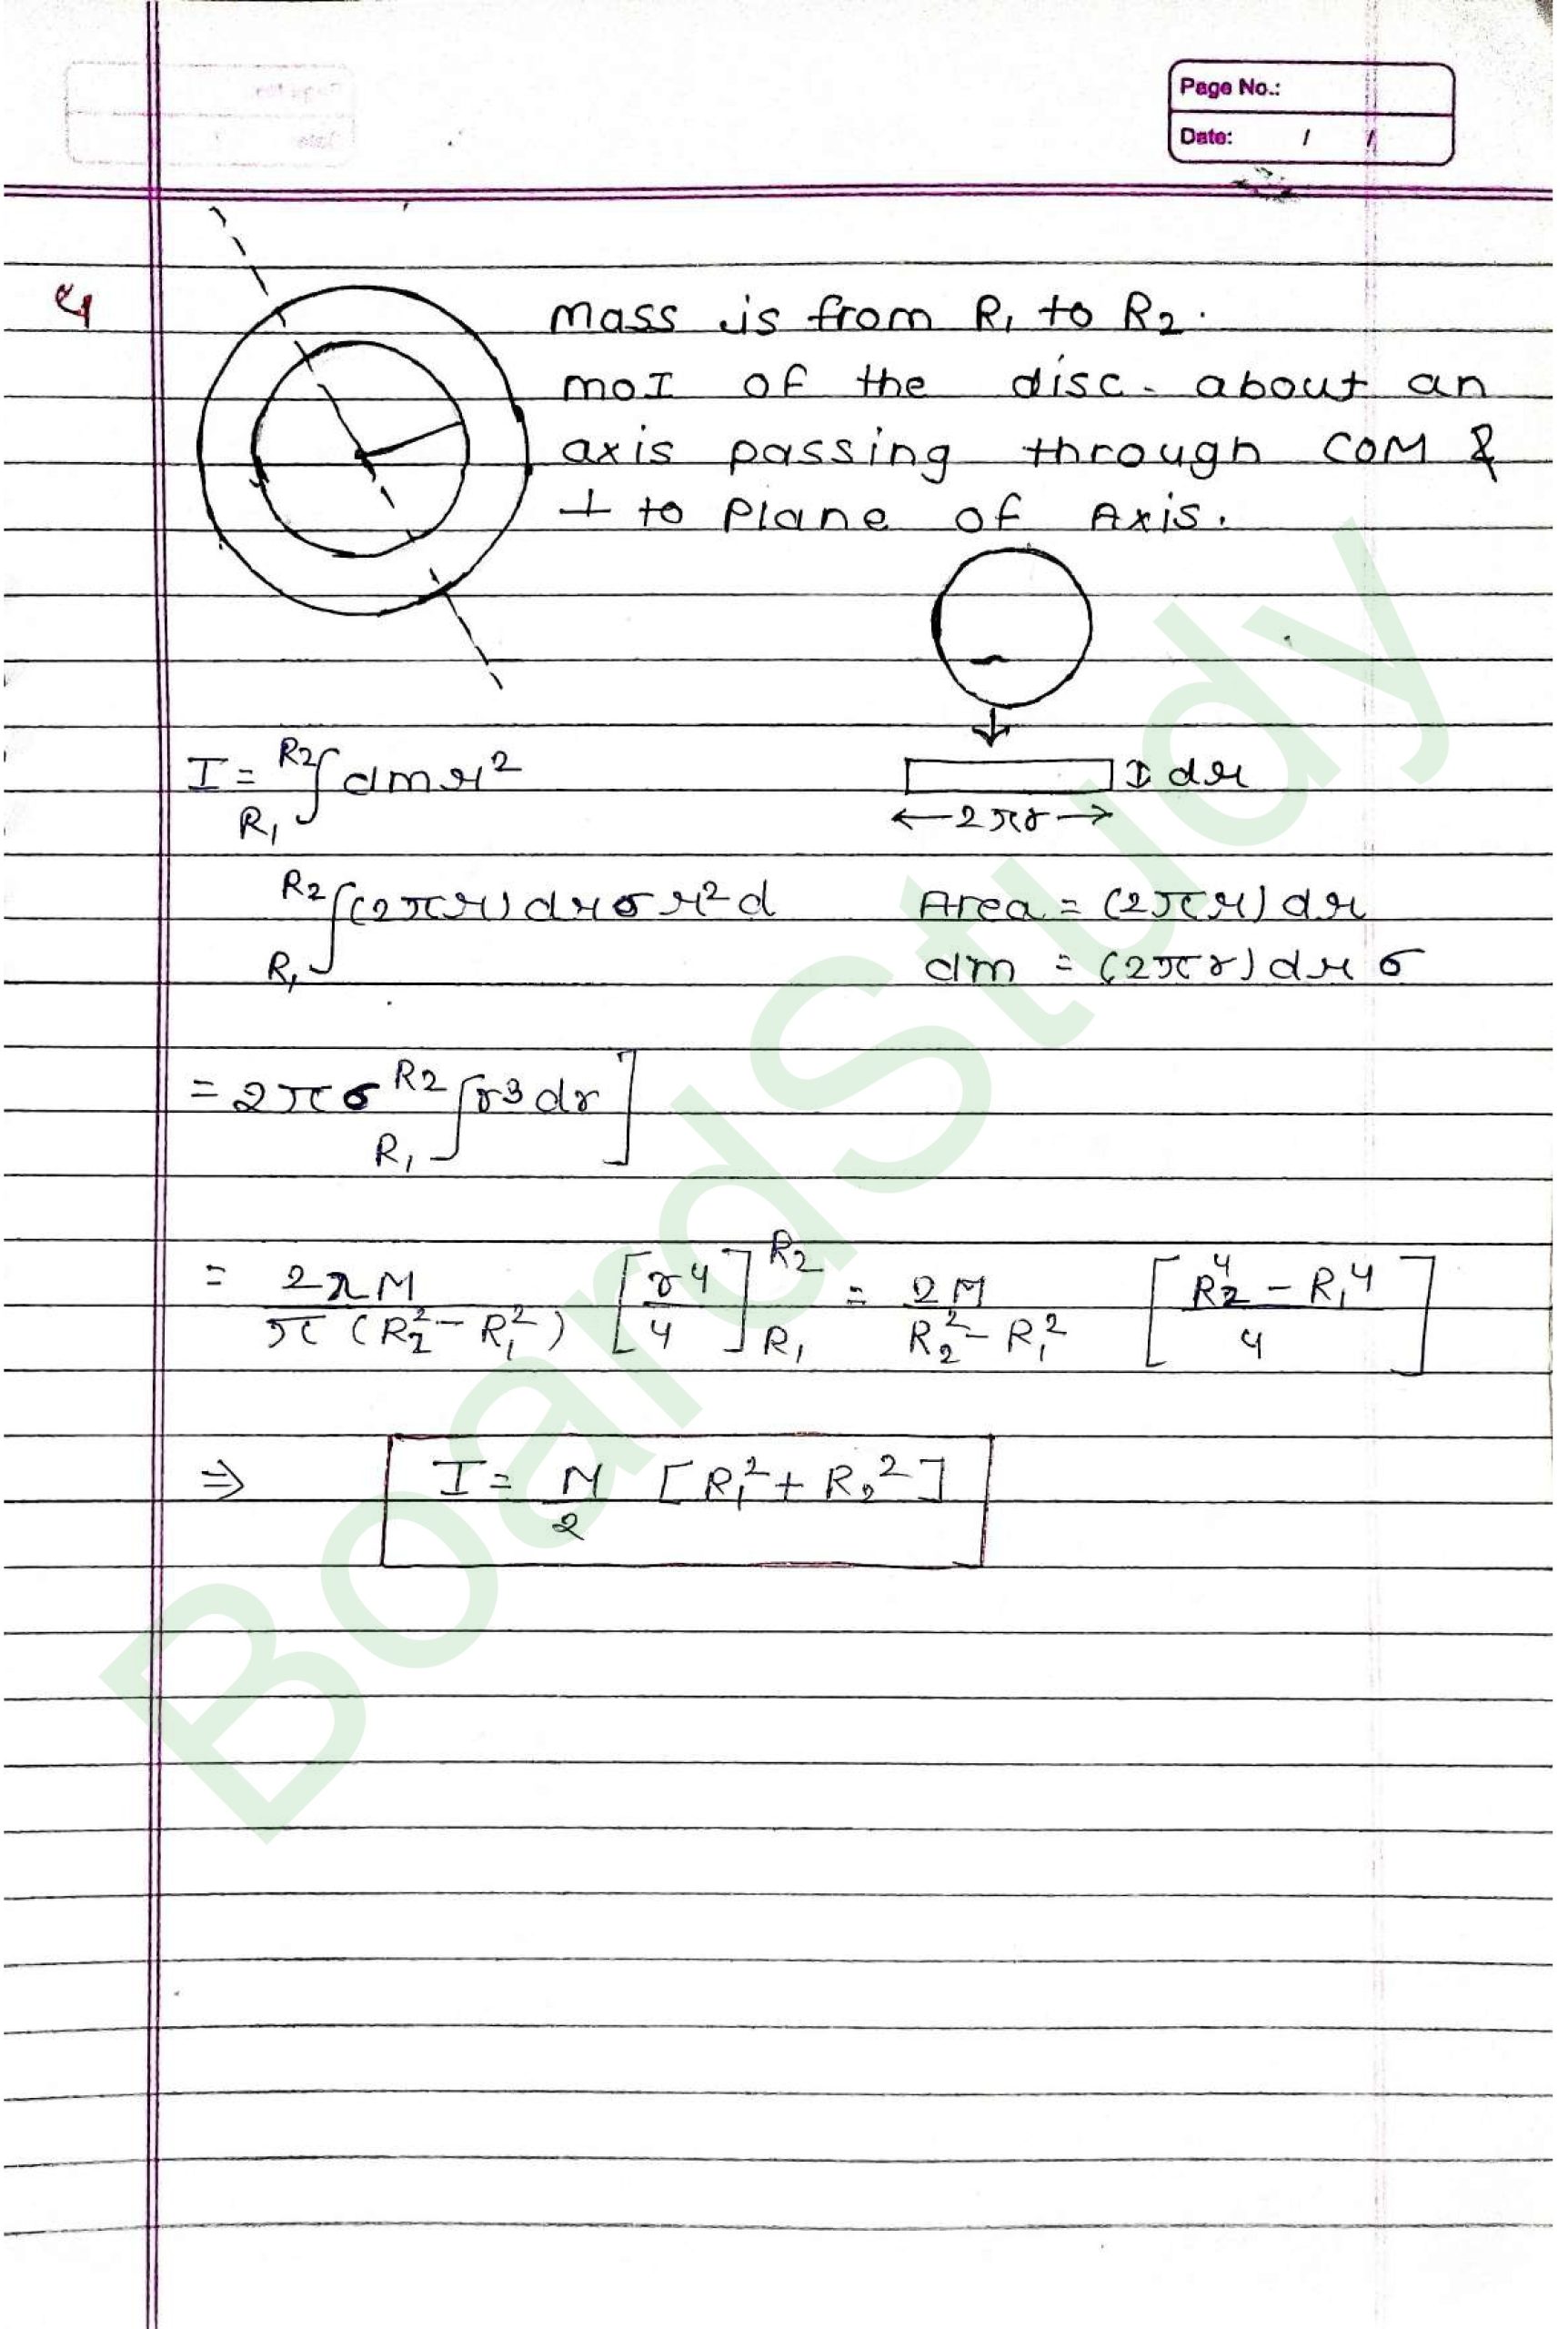 Page No.:
Date: / /
4
mass is from R₁ to R₂.
moI of the disc. about an
axis passing through COM &
⊥ to Plane of Axis.
I = R2∫R₁ dm r²
I dr
←2πr→
R2∫R₁ (2πr) dr σ r² d
Area = (2πr) dr
dm = (2πr) dr σ
= 2πσ R2∫R₁ r3 dr ]
= 2πM / π(R₂² − R₁²) [r⁴/4] R2 R₁ = 2M / R₂² − R₁² [R₂⁴ − R₁⁴ / 4]
⇒ I = M/2 [R₁² + R₂²]
BoardStudy